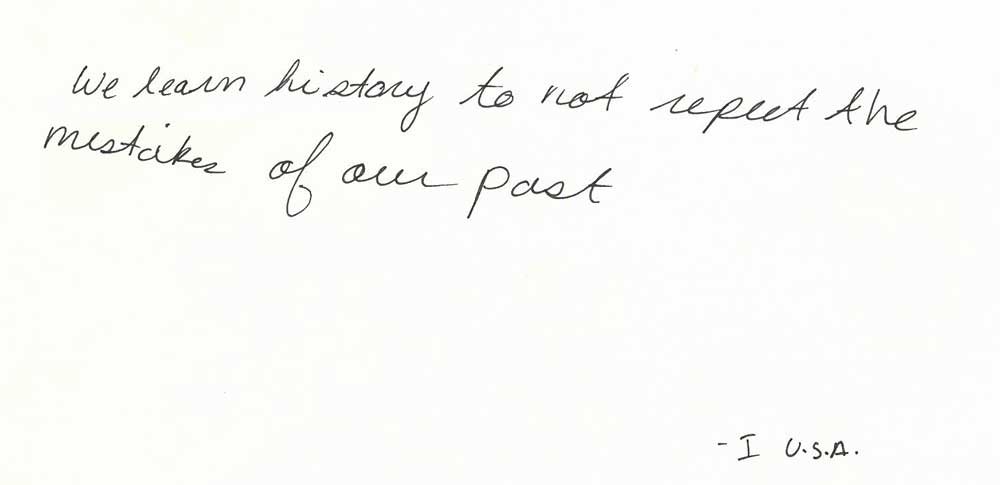 We learn history to not repeat the
mistakes of our past
- I U.S.A.